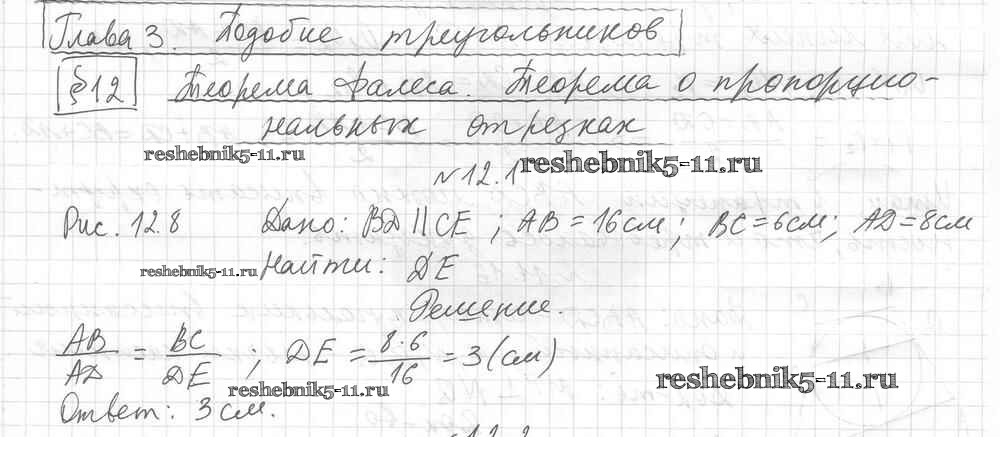 Глава 3. Подобие треугольников
§12 Теорема Фалеса. Теорема о пропорцио-
нальных отрезках
reshebnik5-11.ru
reshebnik5-11.ru
№12.1
Рис. 12.8 Дано: BD ∥ CE ; AB = 16 см ; BC = 6 см ; AD = 8 см
reshebnik5-11.ru
Найти: DE
Решение.
AB/AD = BC/DE ; DE = 8·6/16 = 3 (см)
reshebnik5-11.ru
reshebnik5-11.ru
Ответ: 3 см.